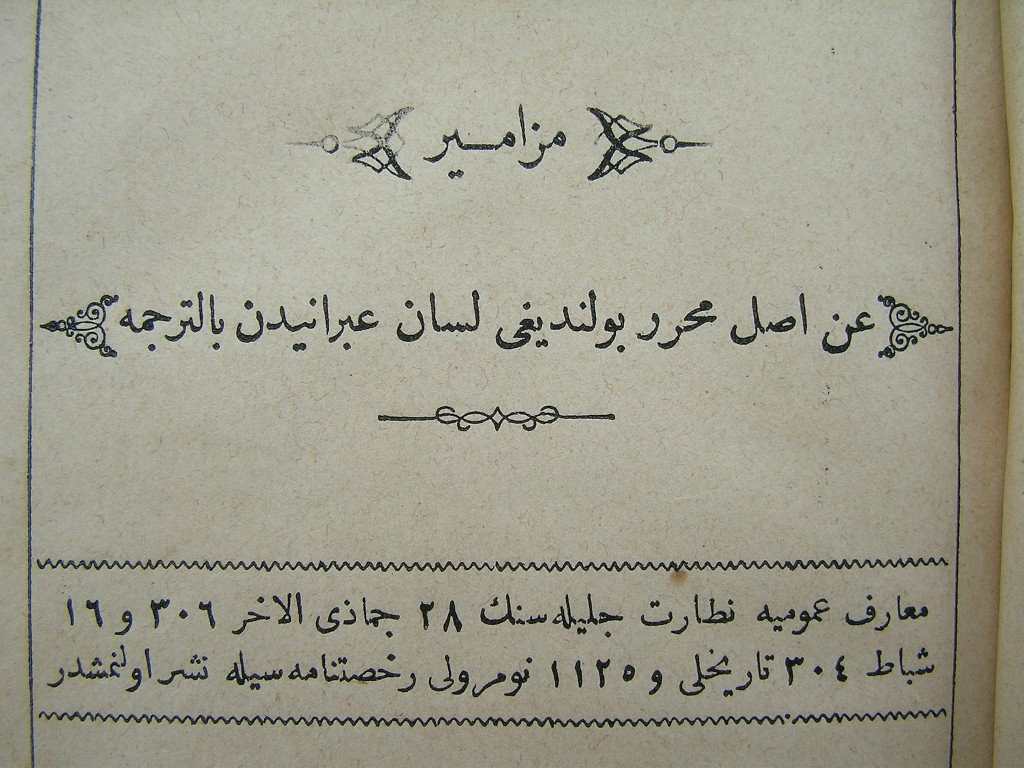 مزامير
عن اصل محرر بولنديغى لسان عبرانيدن بالترجمه
معارف عموميه نظارت جليله سنك ٢٨ جماذى الاخر ٣٠٦ و ١٦
شباط ٣٠٤ تاريخلى و ١١٢٥ نومرولى رخصتنامه سيله نشر اولنمشدر